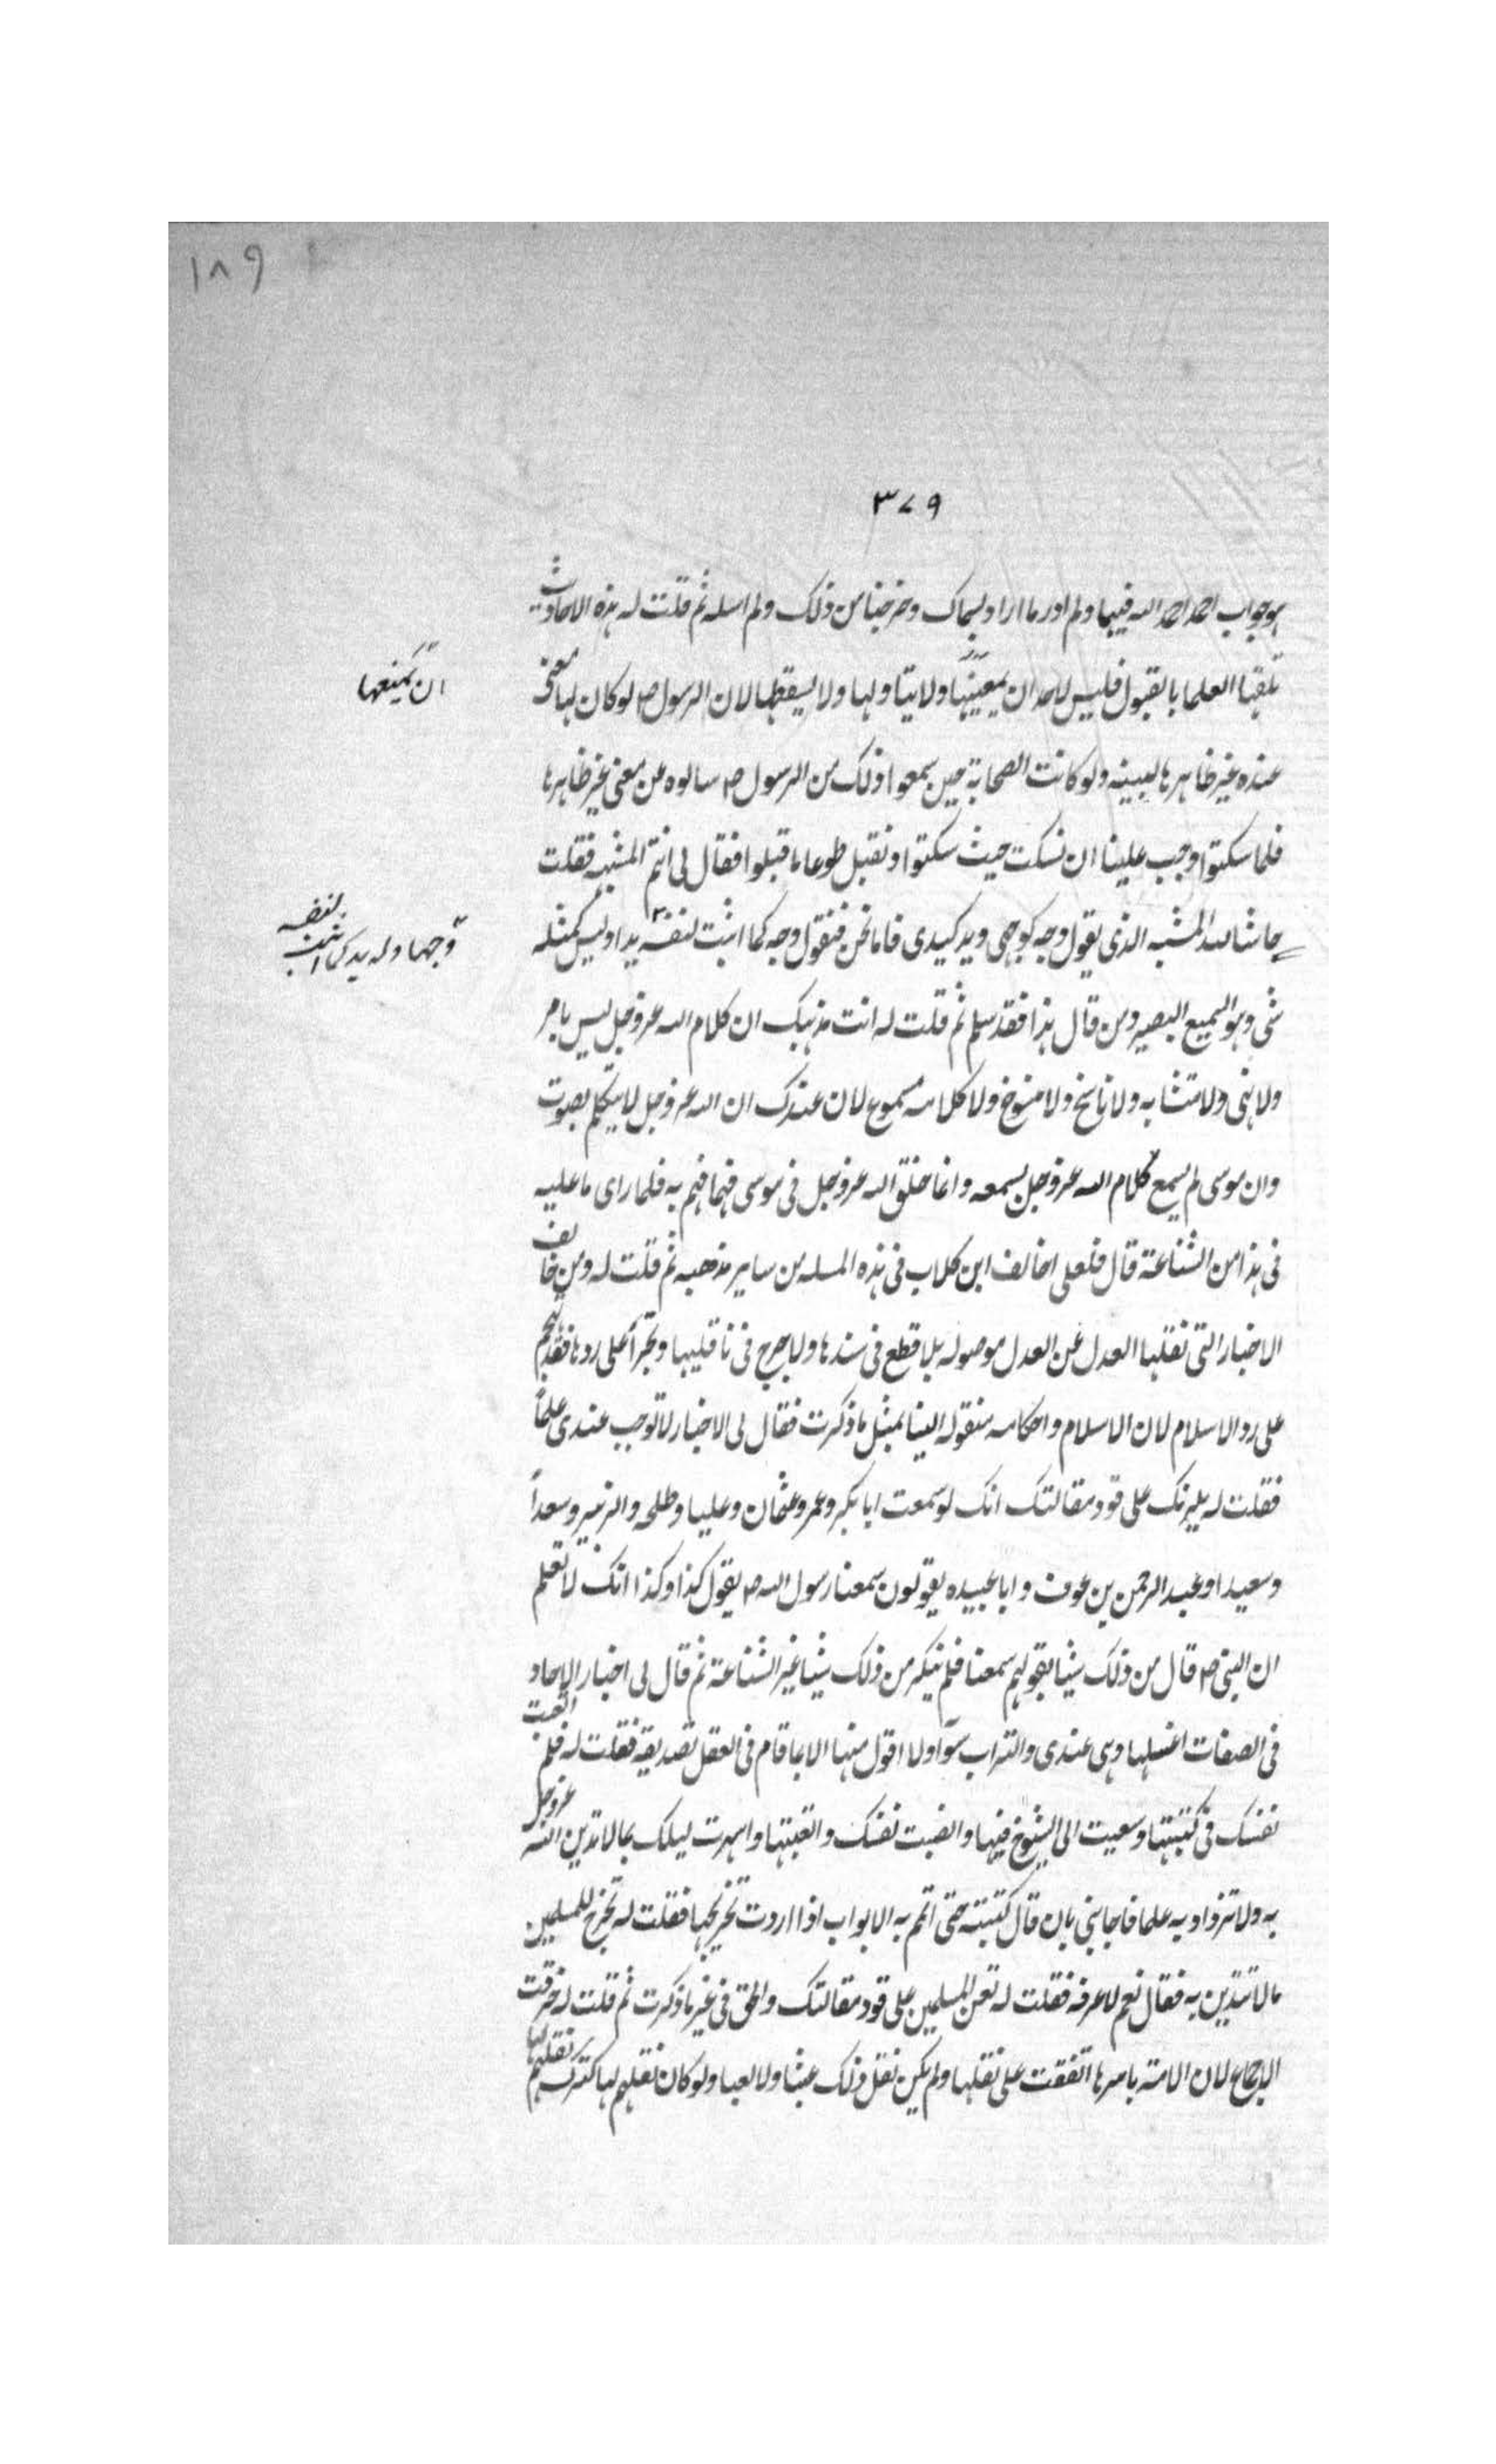 ١٨٩
٣٧٩
هو جواب احمد احمد الله فيها ولم ادر ما اراد بسماك وخرجنا من ذلك ولم اسله ثم قلت له هذه الاحاديث
تلقها العلما بالقبول فليس لاحد ان يمنعها ولا يتاولها ولا يسقطها لان الرسول ص لو كان لها معنى
ان يمنعها
عنده غير ظاهرها لبينه ولو كانت الصحابة حين سمعوا ذلك من الرسول ص سالوه عن معنى غير ظاهرها
فلما سكتوا وجب علينا ان نسكت حيث سكتوا ونقبل طوعا ما قبلوا فقال لى انتم المشبهه فقلت
حاشا لله المشبه الذى يقول وجه كوجهى ويد كيدى فاما نحن فنقول وجه كما اثبت لنفسه يدا وليس كمثله
وجها وله يد كما اثبت لنفسه
شى وهو السميع البصير ومن قال هذا فقد سلم ثم قلت له انت مذهبك ان كلام الله عز وجل ليس بامر
ولا نهى ولا متشابه ولا ناسخ ولا منسوخ ولا كلامه مسموع لان عندك ان الله عز وجل لا يتكلم بصوت
وان موسى لم يسمع كلام الله عز وجل بسمعه وانما خلق الله عز وجل فى موسى فهما فهم به فلما راى ما عليه
فى هذا من الشناعة قال فلعلى اخالف ابن كلاب فى هذه المسله من ساير مذهبه ثم قلت له ومن خالف
الاخبار التى نقلها العدل عن العدل موصوله بلا قطع فى سندها ولا جرح فى ناقليها وتجرأ على ردها فقد تهجم
على رد الاسلام لان الاسلام واحكامه منقوله الينا بمثل ما ذكرت فقال لى الاخبار لا توجب عندى علماً
فقلت له يلزمك على قود مقالتك انك لو سمعت ابا بكر وعمر وعثمان وعليا وطلحه والزبير وسعداً
وسعيدا وعبد الرحمن بن عوف وابا عبيده يقولون سمعنا رسول الله ص يقول كذا وكذا انك لا تعلم
ان النبى ص قال من ذلك شيئا بقولهم سمعنا فلم ينكر من ذلك شيئا غير الشناعة ثم قال لى اخبار الاحاد
فى الصفات اغسلها وهى عندى والتراب سوآ ولا اقول منها الا بما قام فى العقل تصديقه فقلت له فلم اتعبت
نفسك فى كتبتها وسعيت الى الشيوخ فيها وانصبت نفسك واتعبتها واسهرت ليلك بما لا تدين الله عز وجل
به ولا تزداد به علما فاجابنى بان قال كتبته حتى اتم به الابواب اذا اردت تخريجها فقلت له تخرج للمسلمين
ما لا تدين به فقال نعم لاعرفه فقلت له تعن المسلمين على قود مقالتك والحق فى غير ما ذكرت ثم قلت له خرقت
الاجماع لان الامة باسرها اتفقت على نقلها ولم يكن نقل ذلك عبثا ولا لعبا ولو كان نقلهم لها كتركهم نقلهم لها